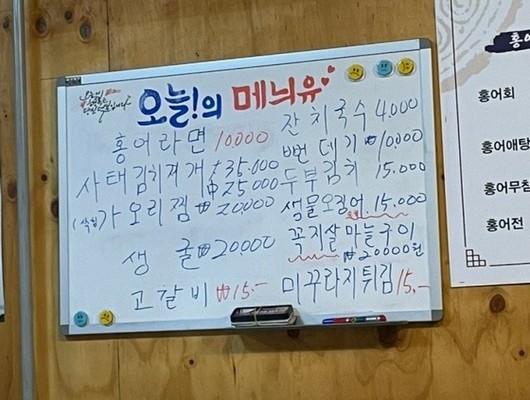 오늘!의 메늬유
홍어라면 10000
사태김치찌개 ₩35.000
₩25000
(삭힘)가오리찜 ₩20000
생 굴 ₩20.000
고갈비 ₩15.-
잔치국수 4000
뻔데기 ₩10,000
두부김치 15.000
생물오징어.15.000
꼭지살마늘구이
₩20000원
미꾸라지튀김 15.-
홍어
홍어회
홍어애탕
홍어무침
홍어전